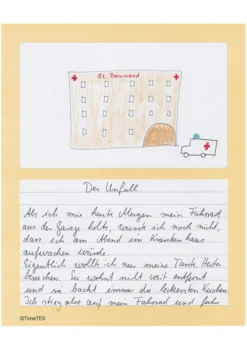 St. Bernward
Der Unfall
Als ich mir heute Morgen mein Fahrrad
aus der Garage holte, wusste ich noch nicht,
dass ich am Abend im Krankenhaus
aufwachen würde.
Eigentlich wollte ich nur meine Tante Herta
besuchen. Sie wohnt nicht weit entfernt
und sie backt immer die leckersten Kuchen.
Ich stieg also auf mein Fahrrad und fuhr
©TimeTEX